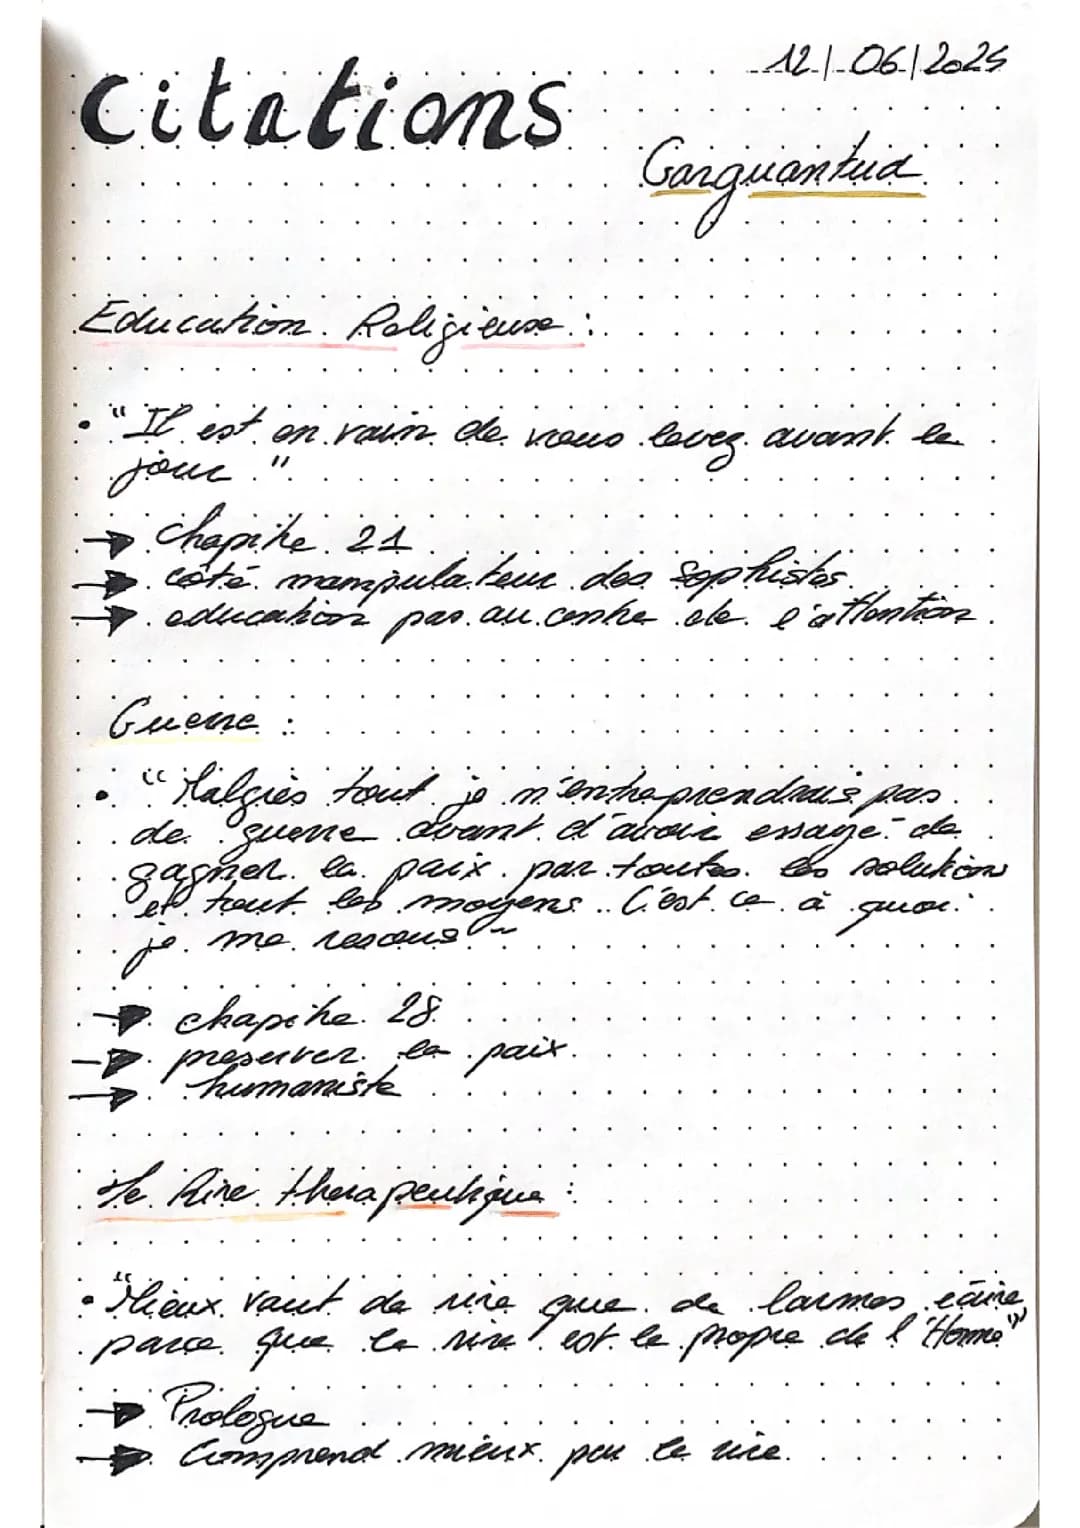 Citations
12/06/2025
Garguantua
Education Religieuse :
• "Il est en vain de vous levez avant le
jour."
→ chapitre 21
→ côté manipulateur des Sophistes
→ education pas au centre de l'attention
Guerre :
• "Malgrès tout je n'entreprendrais pas
de guerre avant d'avoir essayé de
gagner la paix par toutes les solutions
et tout les moyens. C'est ce à quoi
je me resous"
→ chapitre 28
→ preserver la paix
→ humaniste
Le Rire therapeutique :
• "Mieux vaut de rire que de larmes écrire
parce que le rire est le propre de l'Homme"
→ Prologue
→ Comprend mieux par le rire.